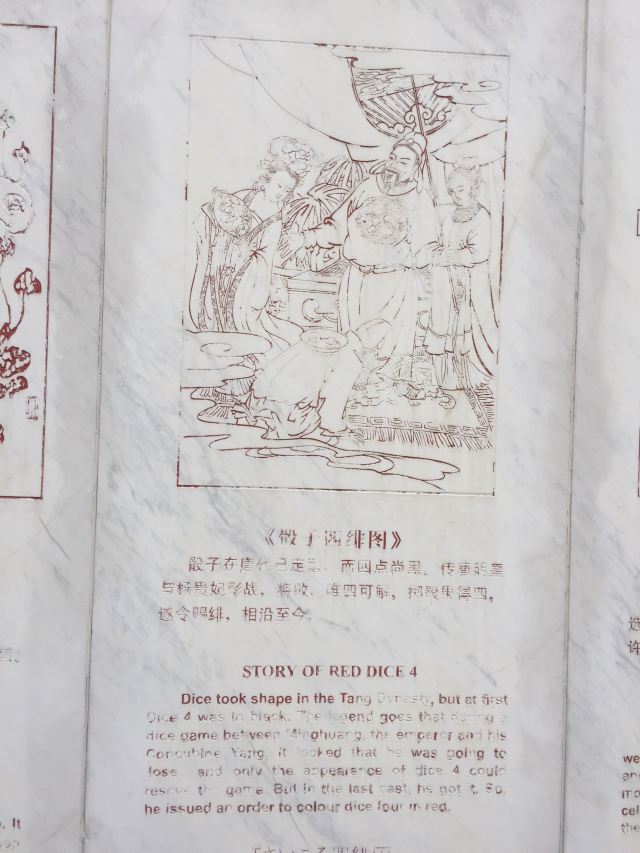 《骰子四绯图》
骰子在唐代已定型，而四点尚黑。传唐明皇
与杨贵妃彩战，将败，唯四可解，掷骰果得四，
遂令赐绯，相沿至今。
STORY OF RED DICE 4
Dice took shape in the Tang Dynasty, but at first
Dice 4 was in black. The legend goes that during a
dice game between Minghuang, the emperor and his
Concubine Yang, it looked that he was going to
lose, and only the appearance of dice 4 could
rescue the game. But in the last cast, he got it. So,
he issued an order to colour dice four in red.
选
许
we
and
mo
cel
the
. It